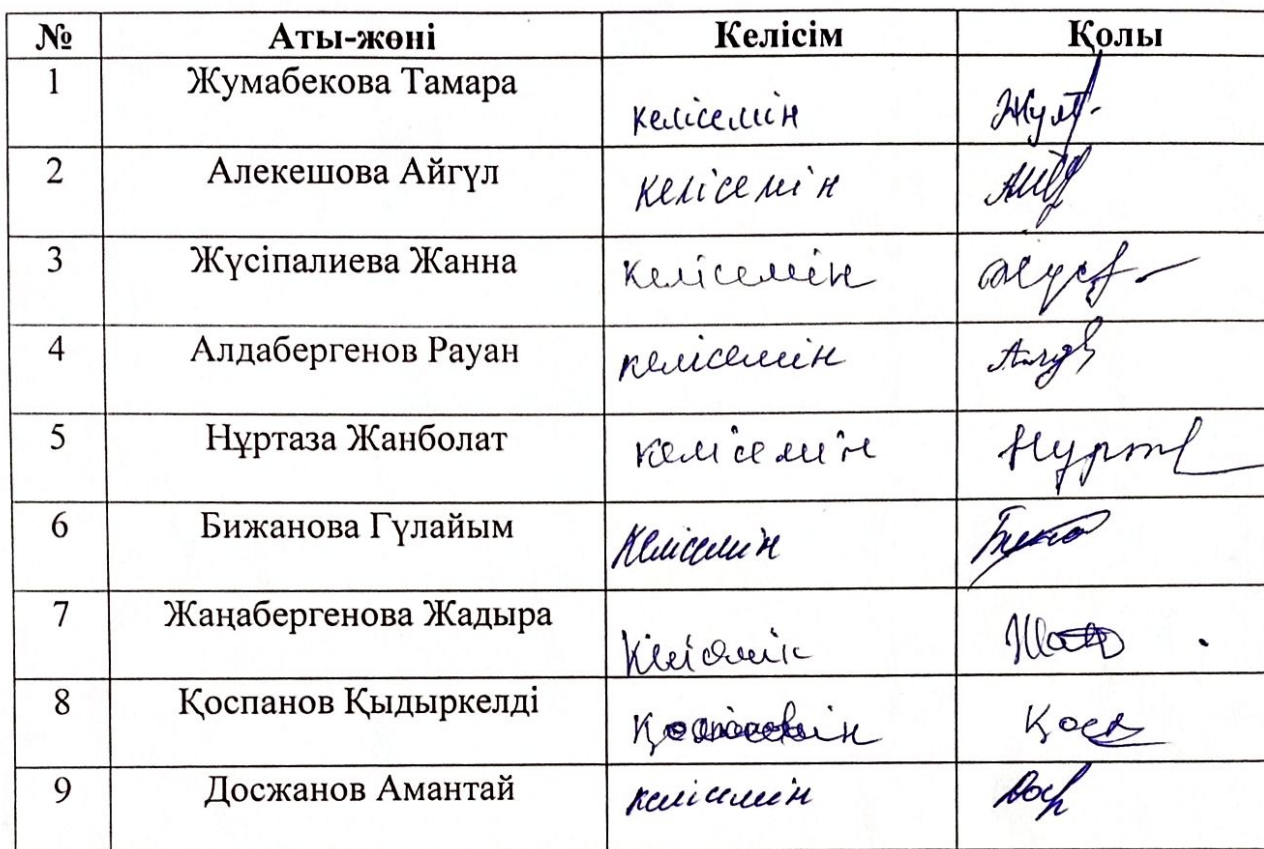 № Аты-жөні Келісім Қолы
1 Жумабекова Тамара келісемін
2 Алекешова Айгүл келісемін
3 Жүсіпалиева Жанна келісемін
4 Алдабергенов Рауан келісемін
5 Нұртаза Жанболат келісемін
6 Бижанова Гүлайым Келісемін
7 Жаңабергенова Жадыра Келісемін
8 Қоспанов Қыдыркелді
9 Досжанов Амантай келісемін